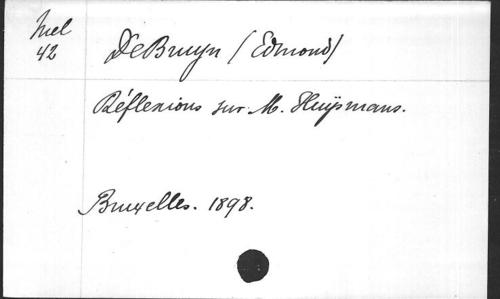 Mel
42
DeBruyn (Edmond)
Réflexions sur M. Huÿsmans.
Bruxelles. 1898.